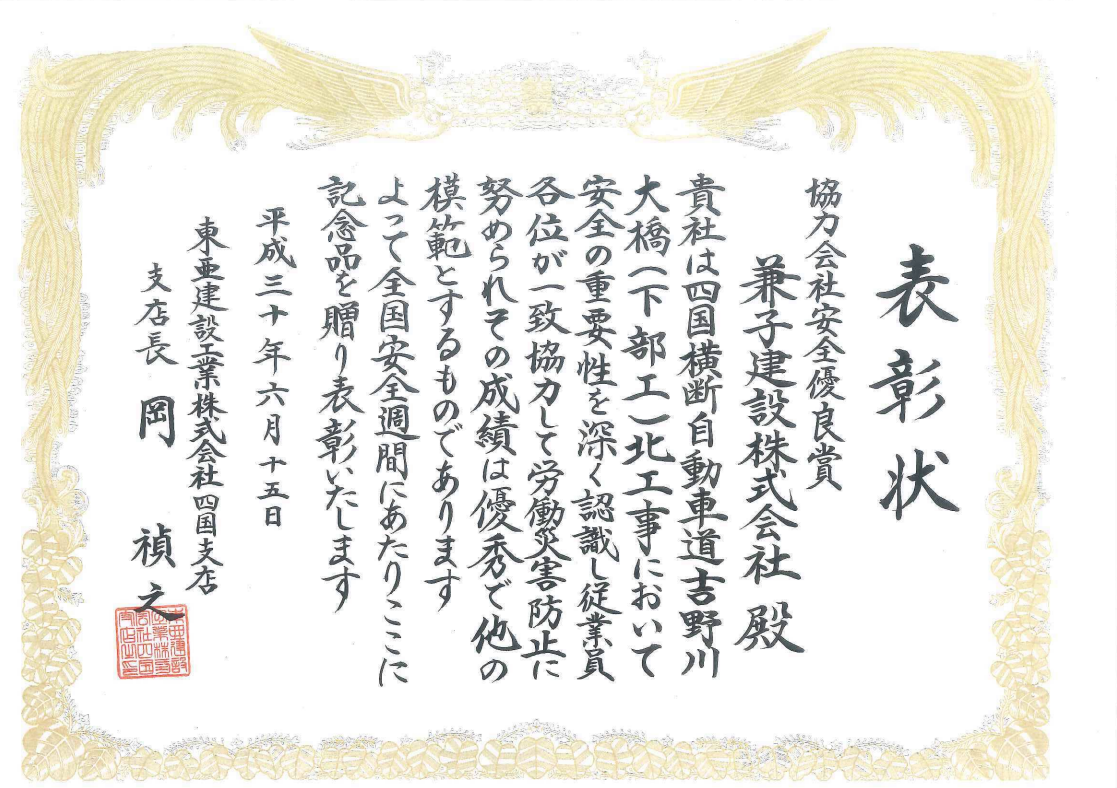 表彰状
協力会社安全優良賞
兼子建設株式会社 殿
貴社は四国横断自動車道吉野川
大橋(下部工)北工事において
安全の重要性を深く認識し従業員
各位が一致協力して労働災害防止に
努められその成績は優秀で他の
模範とするものであります
よって全国安全週間にあたりここに
記念品を贈り表彰いたします
平成三十年六月十五日
東亜建設工業株式会社四国支店
支店長 岡 禎之